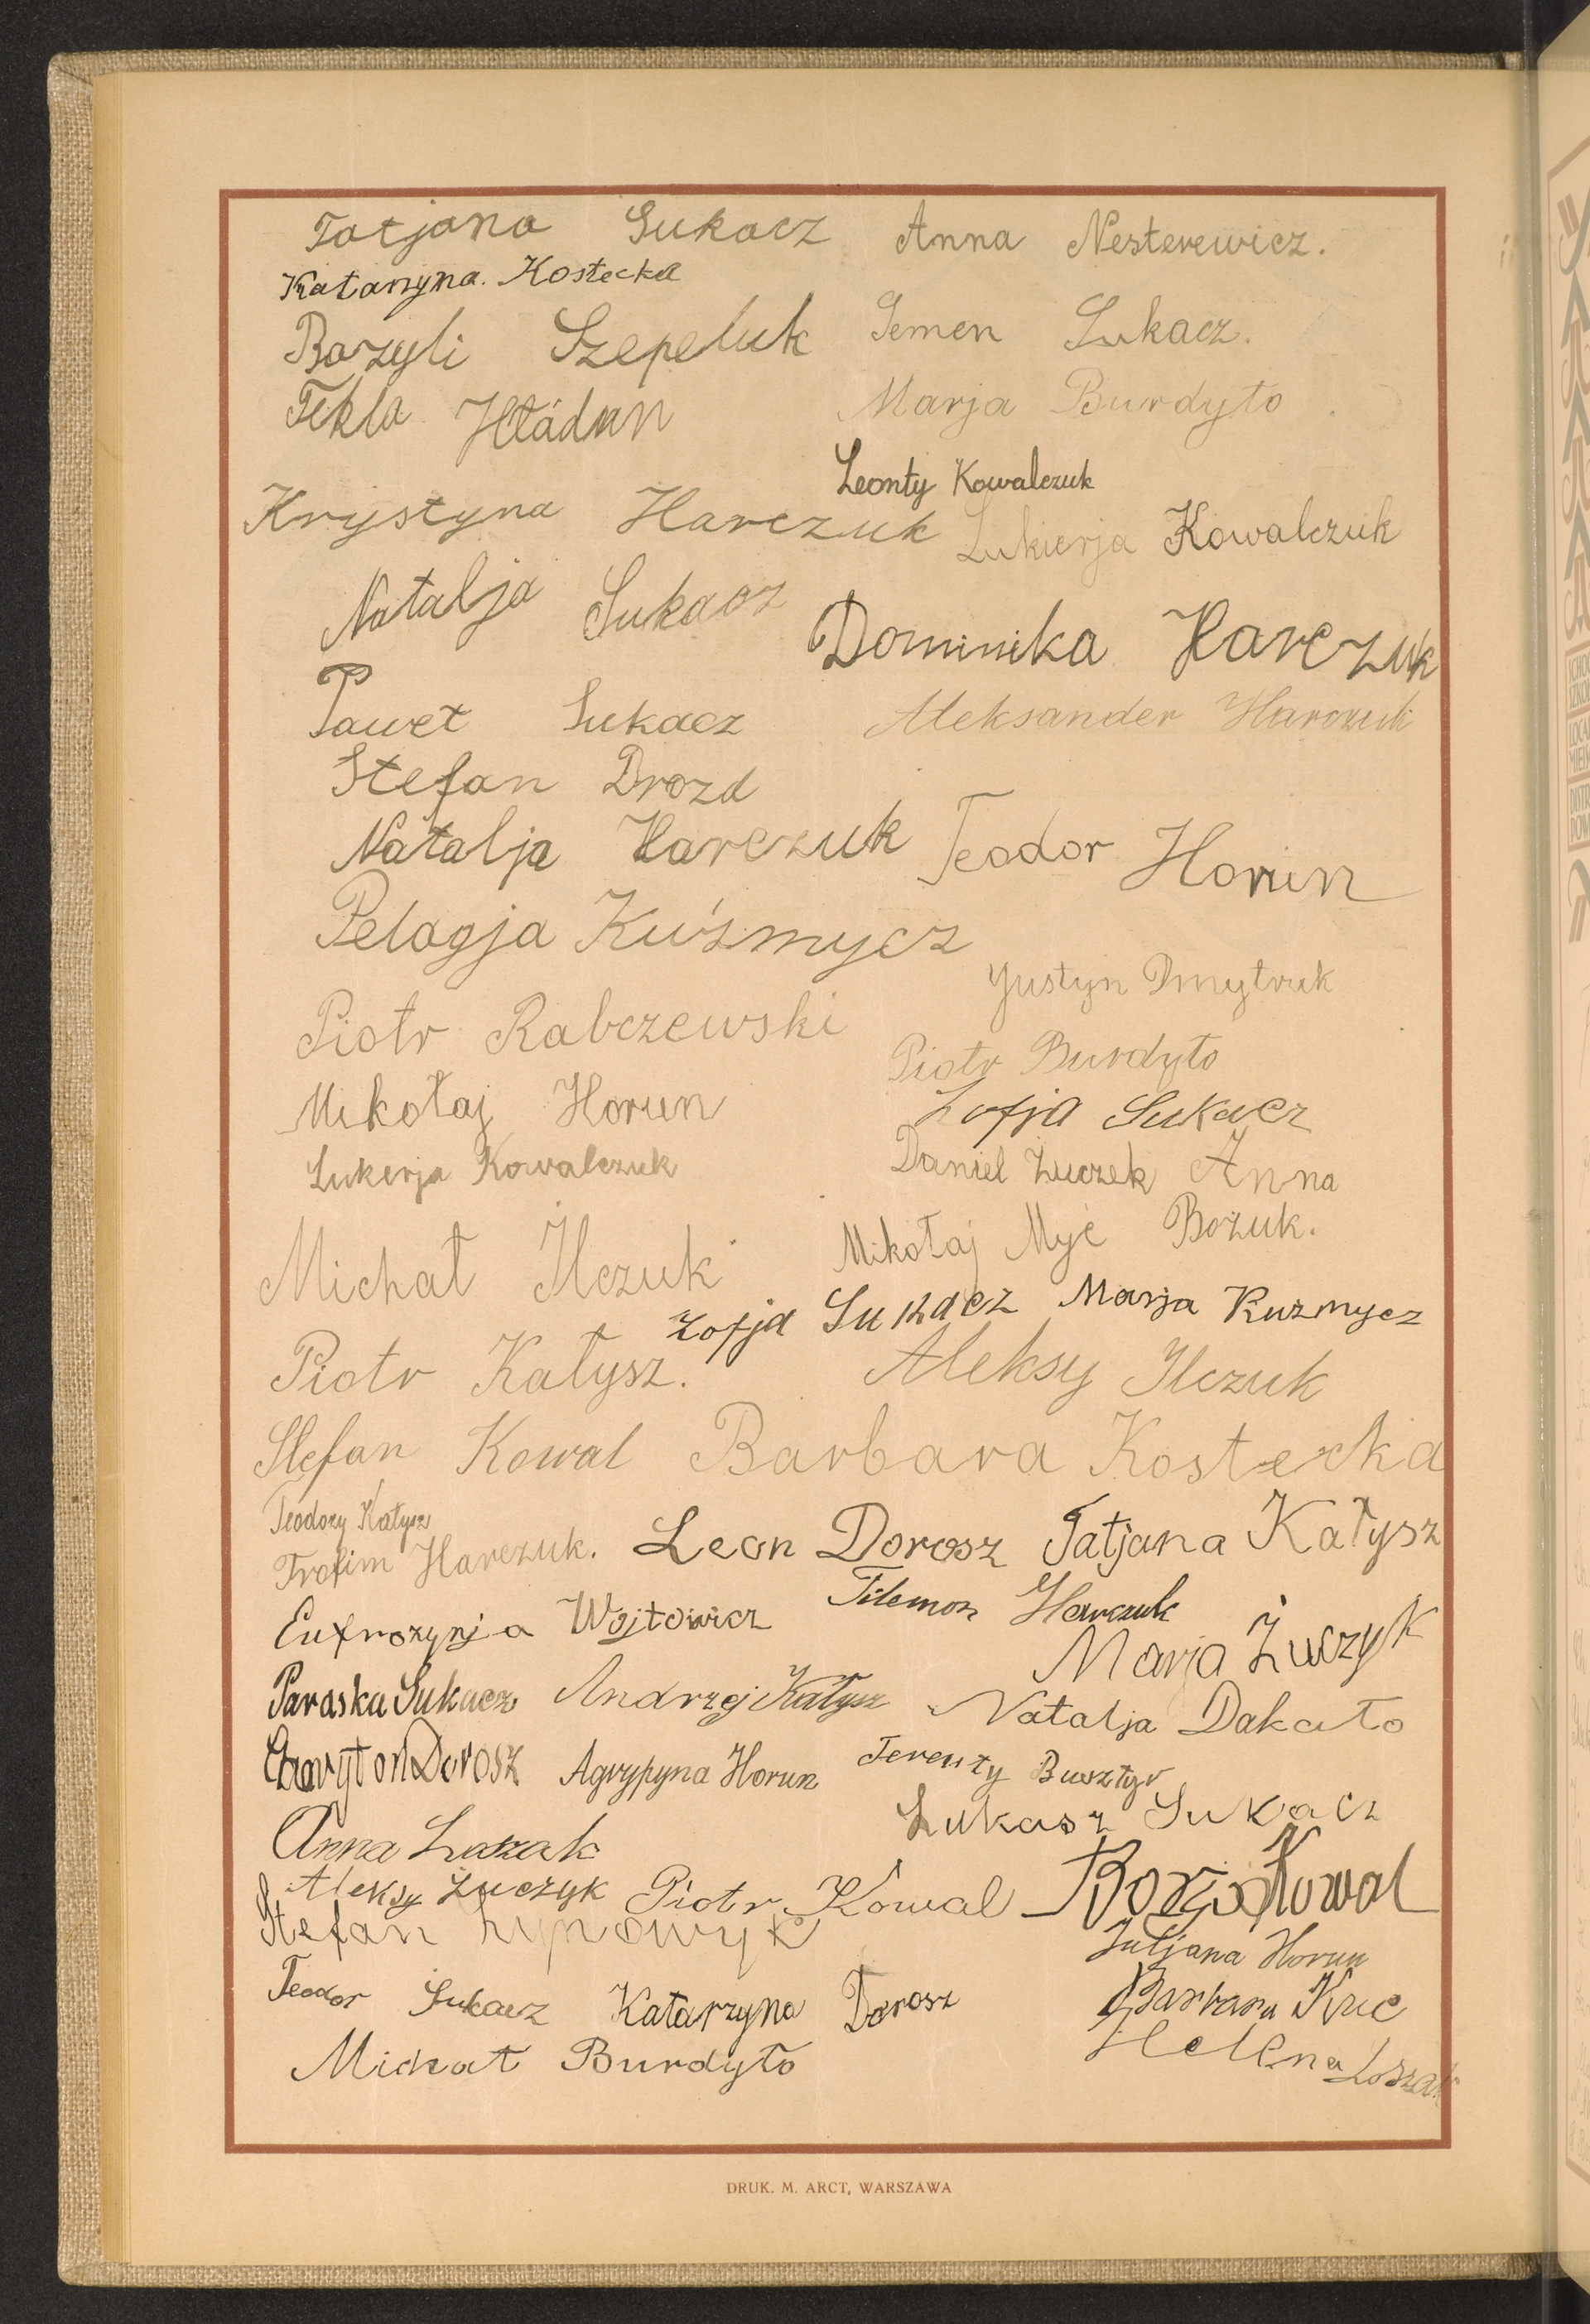 Tatjana Sukacz Anna Nesterewicz.
Katarzyna. Kostecka
Bazyli Szepeluk Semen Sukacz.
Tekla Hładun Marja Burdyło
Leonty Kowalczuk
Krystyna Harczuk Lukierja Kowalczuk
Natalja Sukacz Dominika Harczuk
Paweł Sukacz Aleksander Harczuk
Stefan Drozd
Natalja Harczuk Teodor Horun
Pelagja Kuźmycz
Justyn Dmytruk
Piotr Rabczewski
Piotr Burdyło
Mikołaj Horun Zofja Sukacz
Lukerja Kowalczuk Daniel Żuczek Anna
Michał Ilczuk Mikołaj Myć Bożuk.
Zofja Sukacz Marja Kuzmycz
Piotr Kałysz. Aleksy Ilczuk
Stefan Kowal Barbara Kostecka
Teodozy Kałysz
Trofim Harczuk. Leon Dorosz Tatjana Kałysz
Eufrozynja Wojtowicz Filemon Harczuk
Marja Żuczyk
Paraska Sukacz Andrzej Kałysz Natalja Dakało
Charyton Dorosz Agrypyna Horun Terenty Busztyr
Anna Luszak Łukasz Sukacz
Aleksy Żuczyk Piotr Kowal Kowal
Stefan
Juljana Horun
Teodor Sukacz Katarzyna Dorosz Barbara Kuc
Michał Burdyło Helena Loszak
DRUK. M. ARCT, WARSZAWA